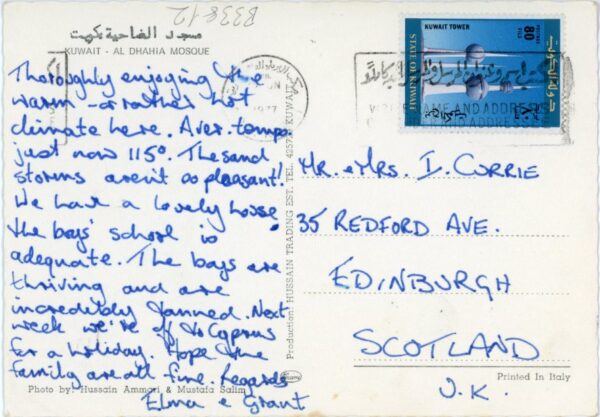 B338-12
مسجد الضاحية كويت
KUWAIT - AL DHAHIA MOSQUE
Thoroughly enjoying the
warm - or rather hot
climate here. Aver. temps
just now 115°. The sand
storms aren't so pleasant!
We have a lovely house
the boys' school is
adequate. The boys are
thriving and are
incredibly tanned. Next
week we're off to Cyprus
for a holiday. Hope the
family are all fine. Regards
Elma & Grant
Photo by: Hussain Ammari & Mustafa Salim
Production: HUSSAIN TRADING EST. TEL. 42574 KUWAIT
1977
KUWAIT
KUWAIT TOWER
80
FILS
STATE OF KUWAIT
دولة الكويت
NAME AND ADDRESS
ADDRESSES
Mr. & Mrs. D. CURRIE
35 REDFORD AVE.
EDINBURGH
SCOTLAND
U.K.
Printed in Italy